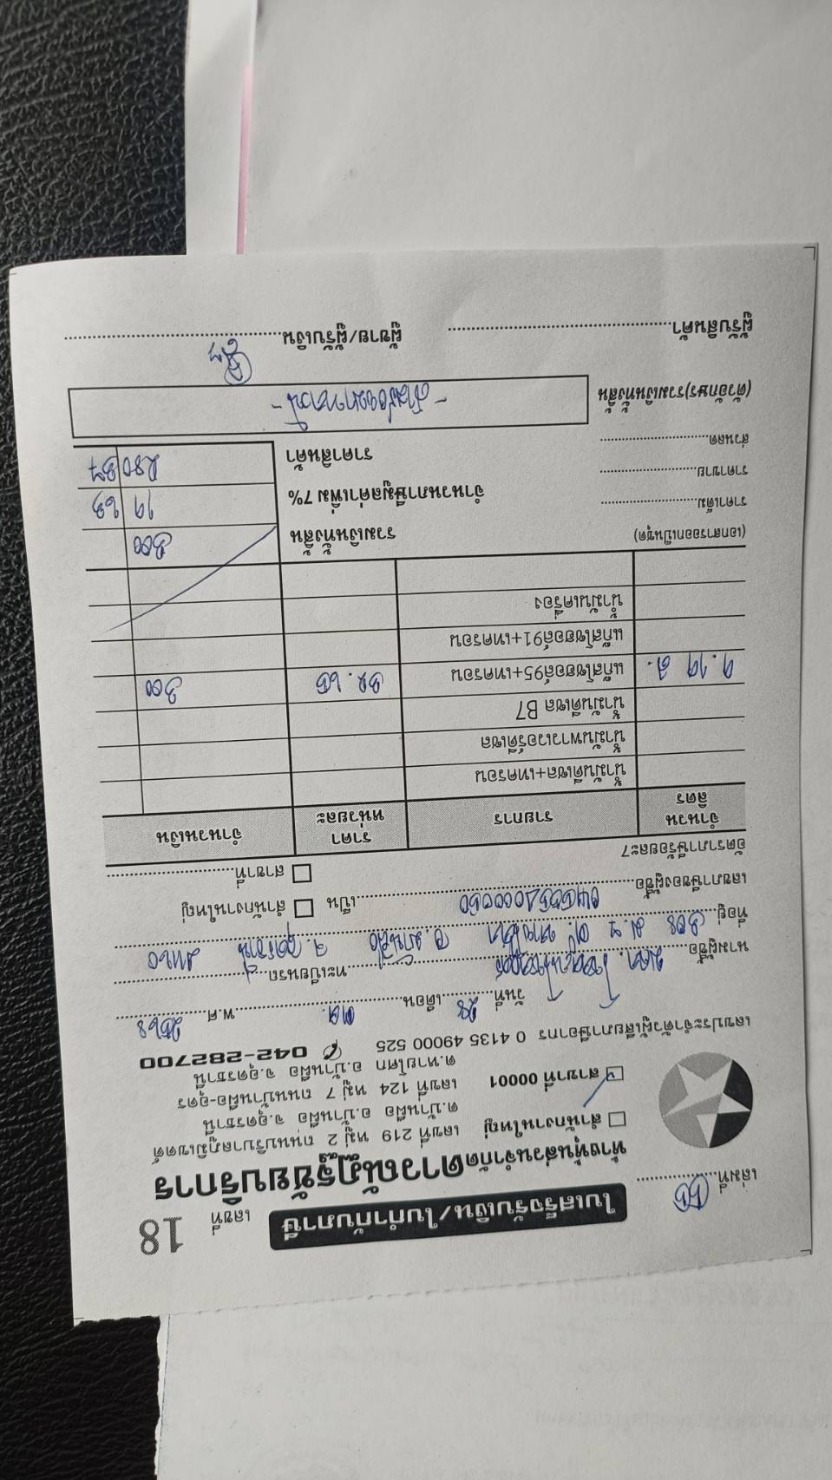 เล่มที่
ใบเสร็จรับเงิน/ใบกำกับภาษี เลขที่ 18
ห้างหุ้นส่วนจำกัดดาวณัฏฐชัยบริการ
สำนักงานใหญ่ เลขที่ 219 หมู่ 2 ถนนบริบาลภูมิเขตต์
ต.บ้านผือ อ.บ้านผือ จ.อุดรธานี
สาขาที่ 00001 เลขที่ 124 หมู่ 7 ถนนบ้านผือ-อุดร
ต.หายโศก อ.บ้านผือ จ.อุดรธานี
เลขประจำตัวผู้เสียภาษีอากร 0 4135 49000 525 042-282700
วันที่ 28 เดือน พ.ศ. 2568
นามผู้ซื้อ ทะเบียนรถ
ที่อยู่ 308 ม.
เลขภาษีของผู้ซื้อ เป็น สำนักงานใหญ่
อัตราภาษีร้อยละ7 สาขาที่
จำนวน ลิตร รายการ ราคา หน่วยละ จำนวนเงิน
น้ำมันดีเซล+เทครอน
น้ำมันเพาเวอร์ดีเซล
น้ำมันดีเซล B7
9.19 ล. แก๊สโซฮอล์95+เทครอน 32.65 300
แก๊สโซฮอล์91+เทครอน
น้ำมันเครื่อง
(เอกสารออกเป็นชุด) รวมเงินทั้งสิ้น 300
ราคาเต็ม
จำนวนภาษีมูลค่าเพิ่ม 7% 19 63
ราคาขาย
ราคาสินค้า 280 37
ส่วนลด
(ตัวอักษร)รวมเงินทั้งสิ้น -สามร้อยบาทถ้วน-
ผู้รับสินค้า ผู้ขาย/ผู้รับเงิน